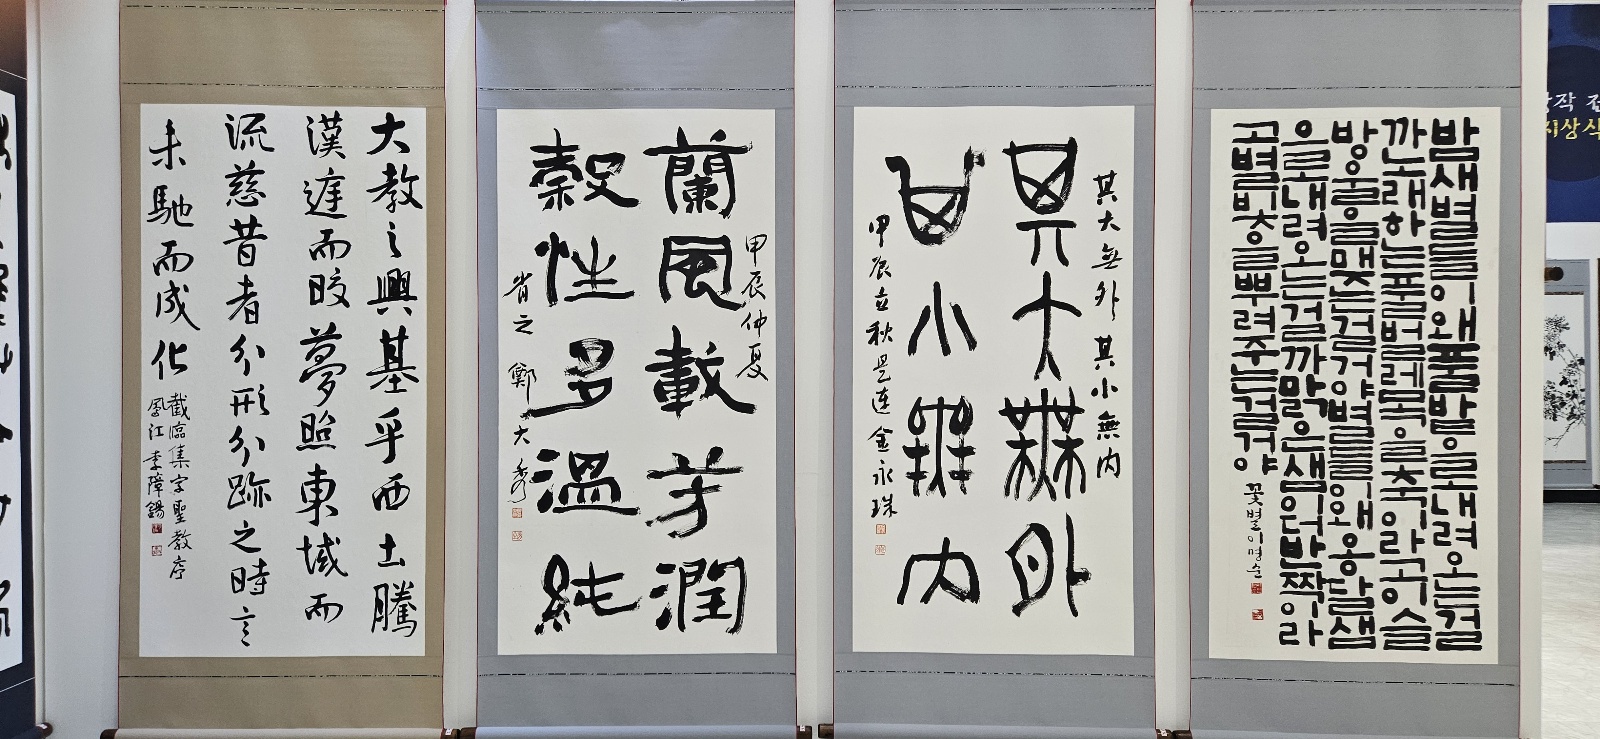 大教之興基乎西土騰
漢庭而皎夢照東域而
流慈昔者分形分跡之時言
未馳而成化
截臨集字聖教序
鳳江 李障錫
甲辰仲夏
蘭風載芳潤
穀性多溫純
省之 鄭大秀
其大無外 其小無內
其大無外
其小無內
甲辰立秋 是連 金永珠
밤새별들이왜풀밭으로내려오는걸
까노래하는풀벌레목을축이라고이슬
방울을맺는걸거야별들이왜옹달샘
으로내려오는걸까맑은샘원반짝이라
고별빛을뿌려주는걸거야
꽃별 이명순
작
시상식